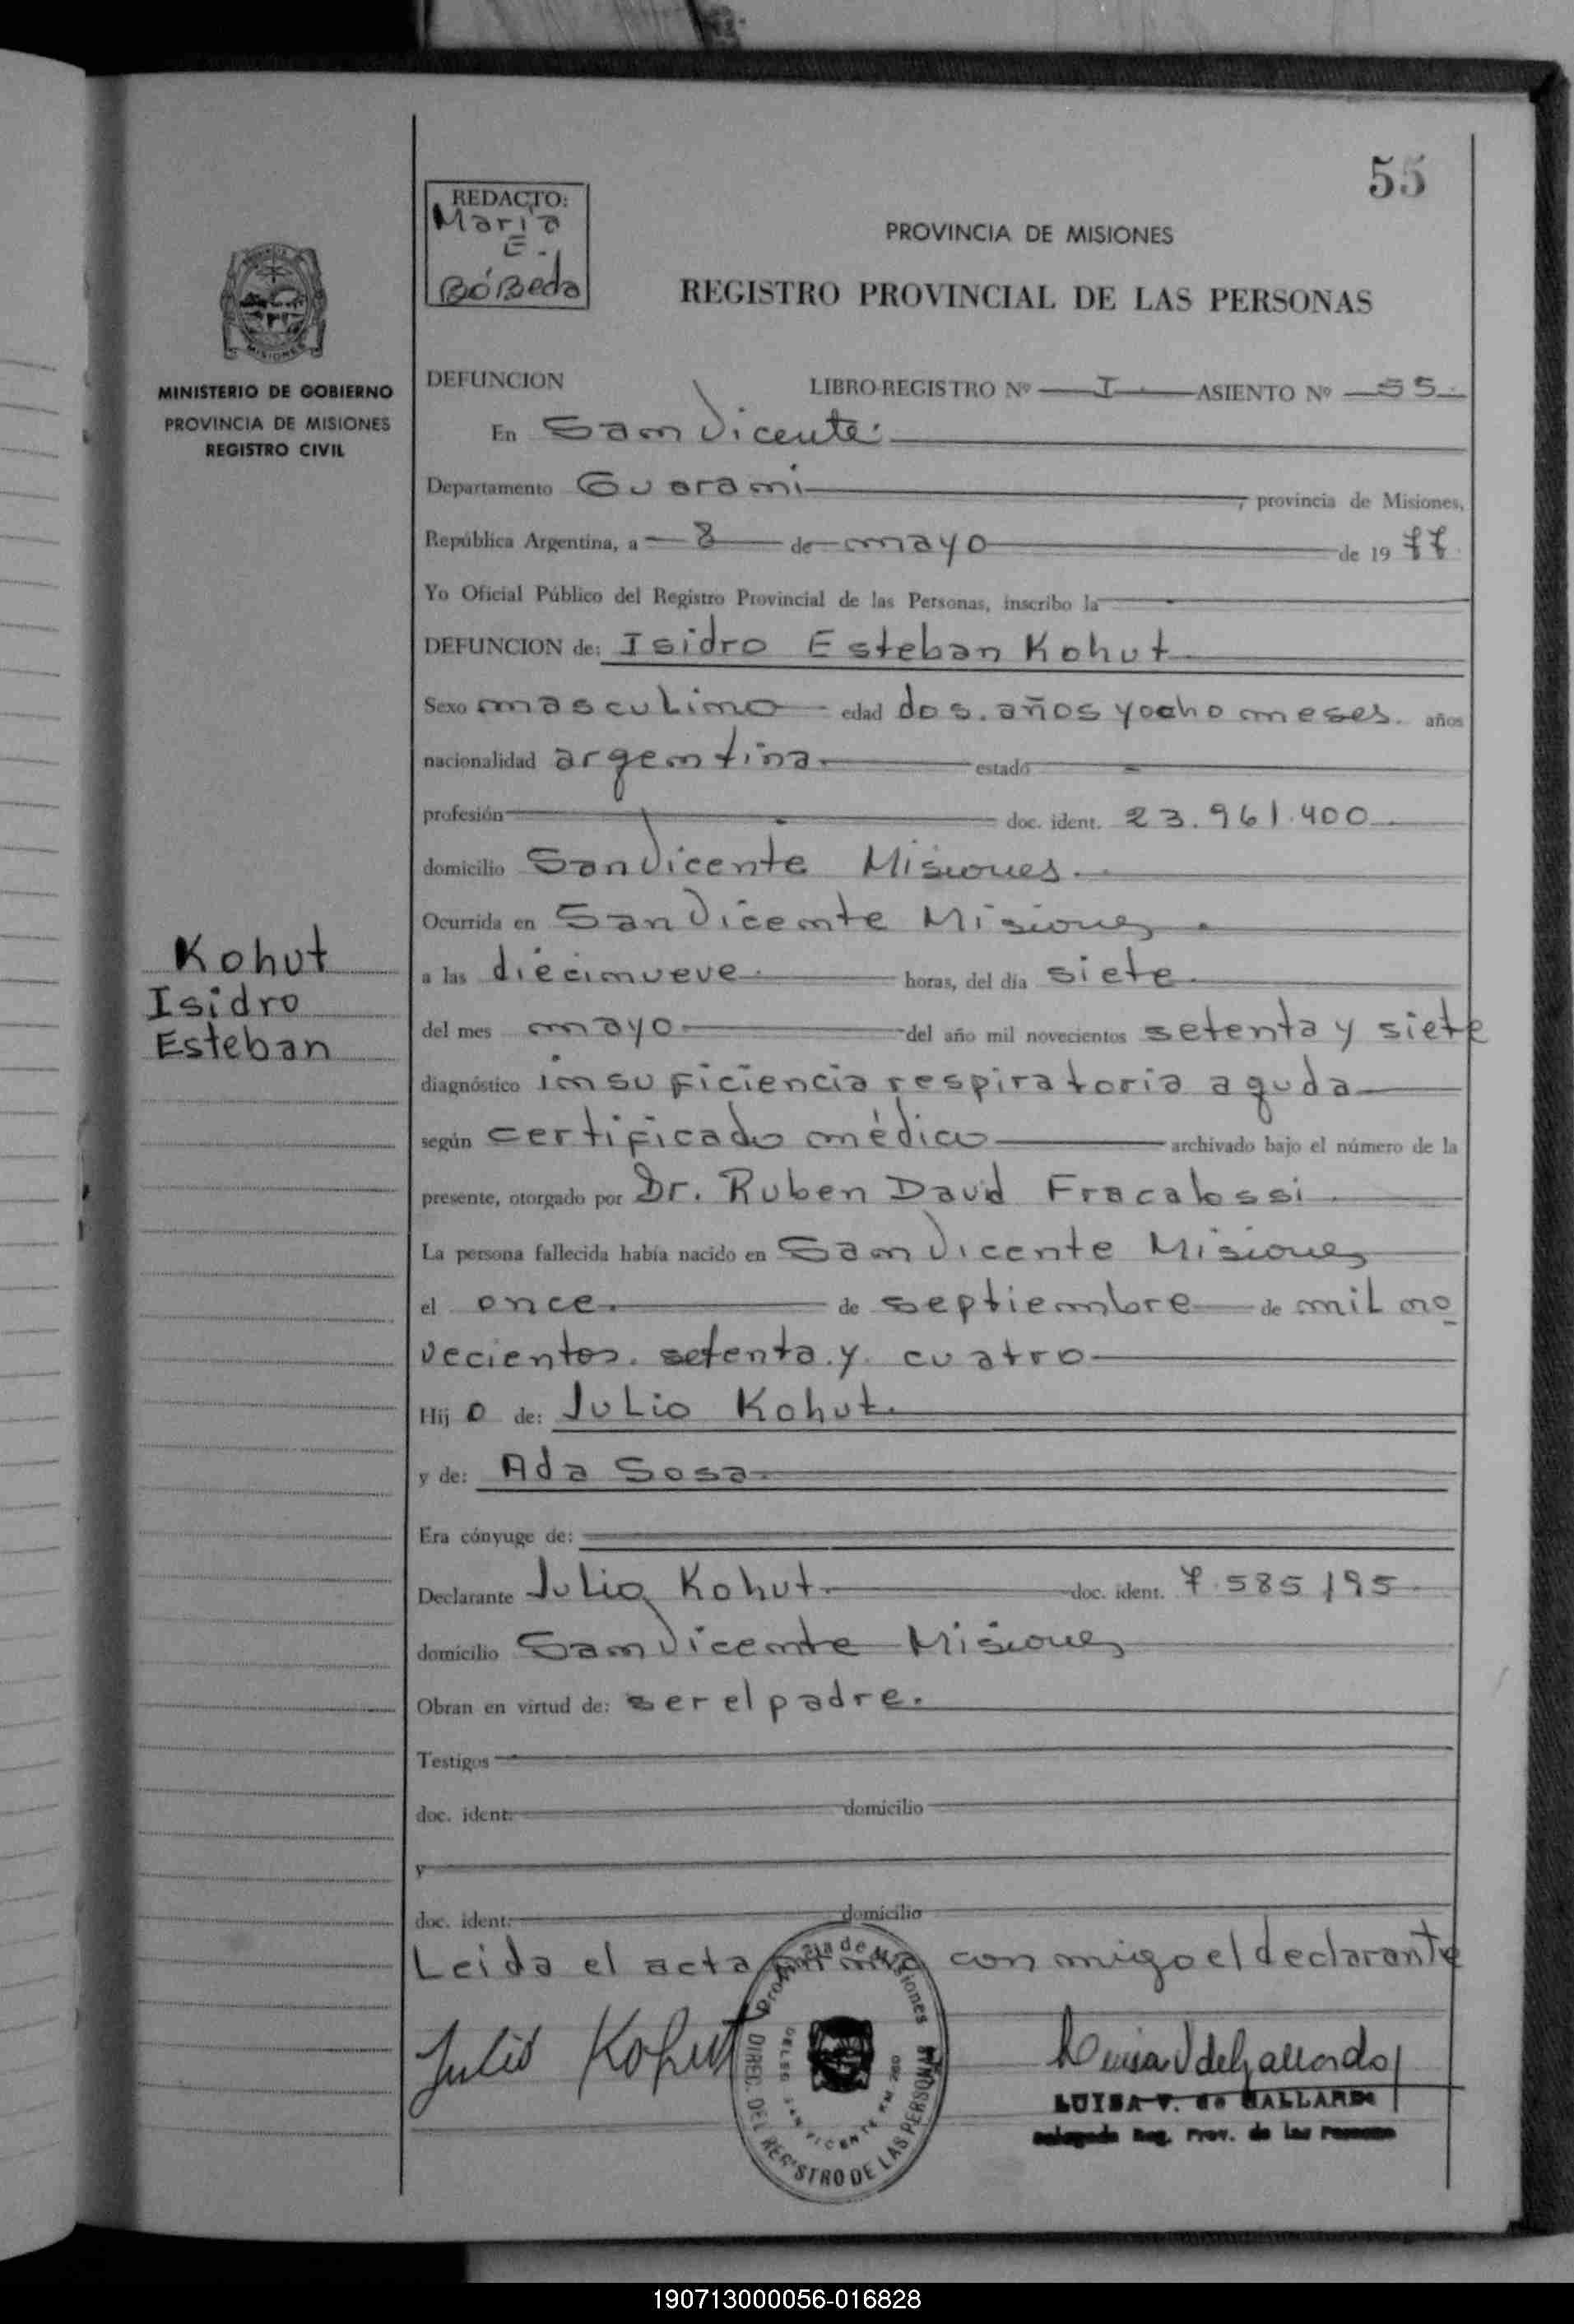 55
REDACTO:
Maria
E.
BóBeda
PROVINCIA DE MISIONES
REGISTRO PROVINCIAL DE LAS PERSONAS
MISIONES
MINISTERIO DE GOBIERNO
PROVINCIA DE MISIONES
REGISTRO CIVIL
DEFUNCION LIBRO-REGISTRO Nº I ASIENTO Nº 55
En San Vicente
Departamento Guarani, provincia de Misiones,
República Argentina, a 8 de mayo de 1977
Yo Oficial Público del Registro Provincial de las Personas, inscribo la
DEFUNCION de: Isidro Esteban Kohut
Sexo masculino edad dos años y ocho meses. años
nacionalidad argentina estado
profesión doc. ident. 23.961.400
domicilio San Vicente Misiones
Ocurrida en San Vicente Misiones
Kohut
Isidro
Esteban
a las diecinueve horas, del día siete
del mes mayo del año mil novecientos setenta y siete
diagnóstico insuficiencia respiratoria aguda
según certificado médico archivado bajo el número de la
presente, otorgado por Dr. Ruben David Fracalossi
La persona fallecida había nacido en San Vicente Misiones
el once de septiembre de mil no
vecientos setenta y cuatro
Hijo de: Julio Kohut
y de: Ada Sosa
Era cónyuge de:
Declarante Julio Kohut doc. ident. 7.585195
domicilio San Vicente Misiones
Obran en virtud de: ser el padre.
Testigos
doc. ident. domicilio
y
doc. ident. domicilio
Leida el acta con migo el declarante
Provincia de Misiones
DIREC. DEL REGISTRO DE LAS PERSONAS
DELEG. SAN VICENTE KM 260
Julio Kohut
Luisa V de Gallardo
LUISA V. de GALLARDO
Delegada Reg. Prov. de las Personas
190713000056-016828